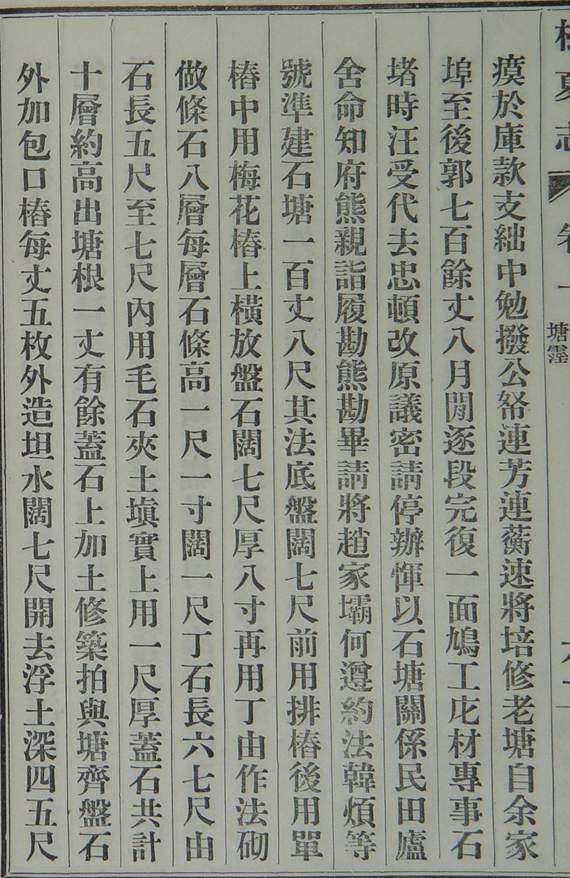 夏志 卷一 塘霪
瘼於庫款支絀中勉撥公帑連芳連蘅速將培修老塘自余家
埠至後郭七百餘丈八月閒逐段完復一面鳩工庀材專事石
堵時汪受代去忠頓改原議密請停辦惲以石塘關係民田廬
舍命知府熊親詣履勘熊勘畢請將趙家壩何遵約法韓煩等
號準建石塘一百丈八尺其法底盤闊七尺前用排樁後用單
樁中用梅花樁上橫放盤石闊七尺厚八寸再用丁由作法砌
做條石八層每層石條高一尺一寸闊一尺丁石長六七尺由
石長五尺至七尺內用毛石夾土塡實上用一尺厚蓋石共計
十層約高出塘根一丈有餘蓋石上加土修築拍與塘齊盤石
外加包口樁每丈五枚外造坦水闊七尺開去浮土深四五尺